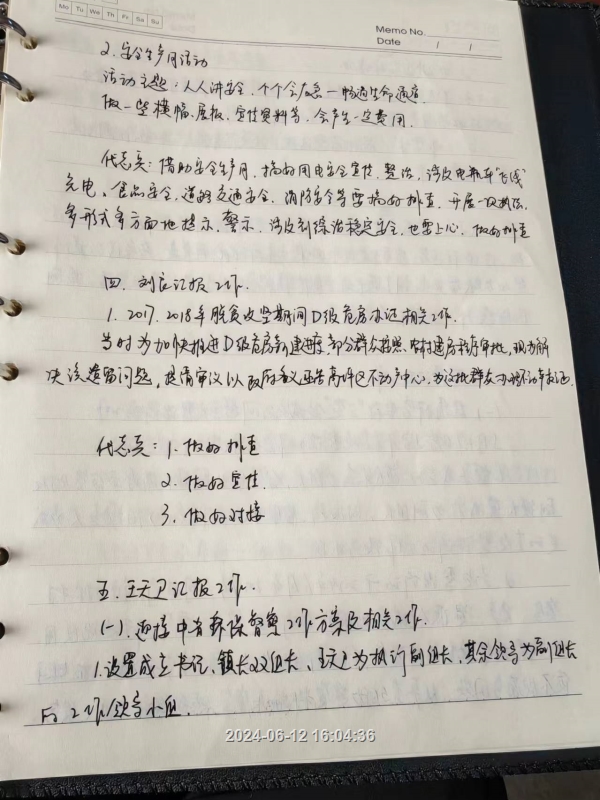 Mo Tu We Th Fr Sa Su
Memo No.
Date / /
2. 安全生产月活动
活动主题：人人讲安全、个个会应急—畅通生命通道
做一些横幅、展板、宣传资料等，会产生一定费用
代志兵：借助安全生产月，搞好用电安全宣传、整治，涉及电瓶车“飞线”
充电、食品安全，道路交通安全，消防安全等要搞好排查，开展一次执法，
多形式多方面地提示、警示，涉及到综治稳定安全，也要上心，做好排查
四、刘 汇报工作.
1. 2017、2018年脱贫攻坚期间D级危房办证相关工作.
当时为加快推进D级危房新建进度，部分群众 按照农村建房程序审批，现为解
决该遗留问题，提请审议以政府名义函告高坪区不动产中心，为这批群众办理不动产证.
代志兵：1. 做好排查
2. 做好宣传
3. 做好对接
五、王天卫汇报工作.
(一)、迎接中省环保督察工作方案及相关工作.
1. 设置成立书记、镇长双组长，王天卫为执行副组长，其余领导为副组长
的工作领导小组.
2024-06-12 16:04:36